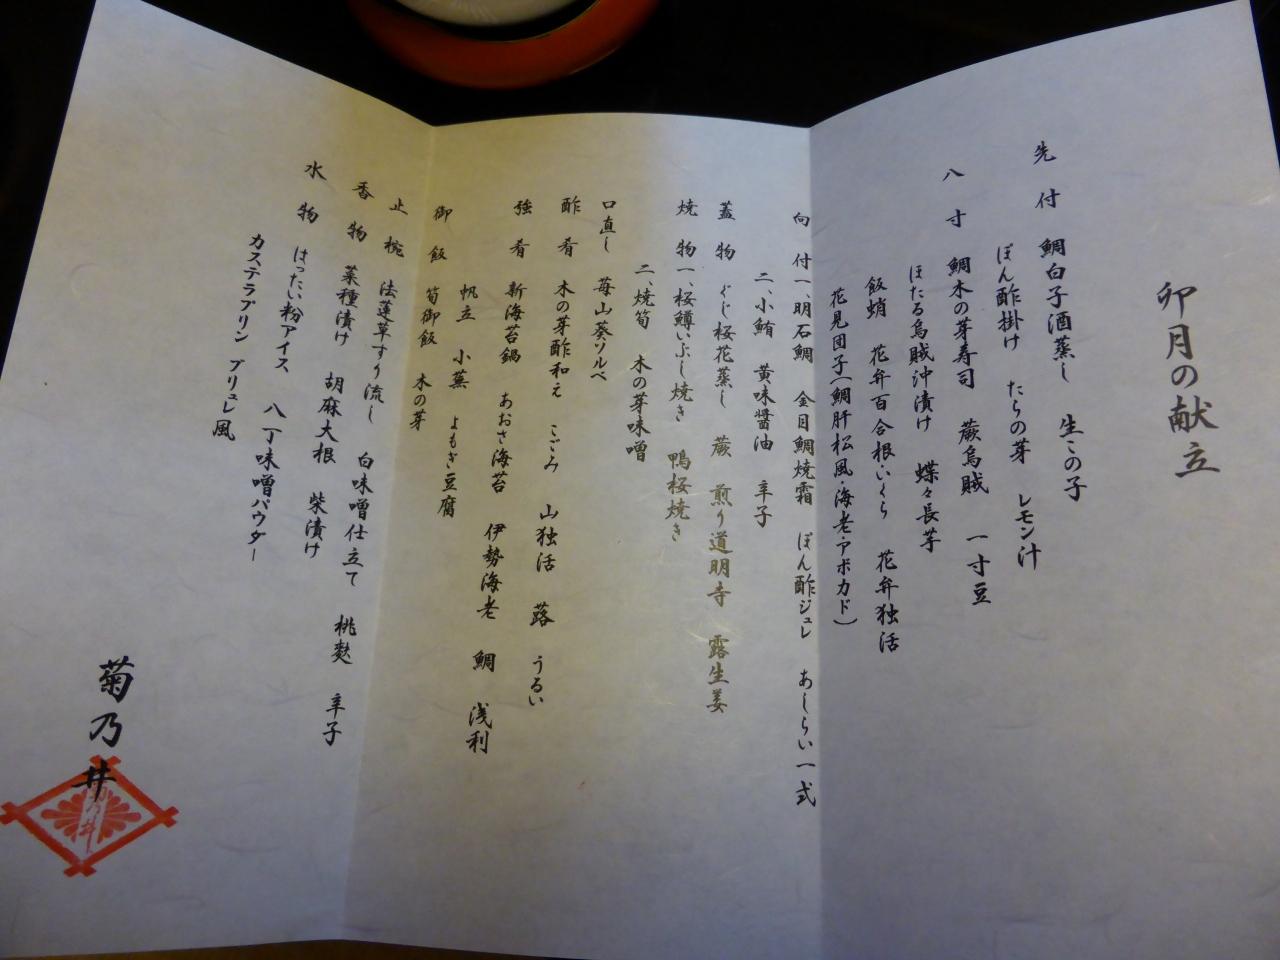 卯月の献立
先付 鯛白子酒蒸し 生この子
ぽん酢掛け たらの芽 レモン汁
八寸 鯛木の芽寿司 蕨烏賊 一寸豆
ほたる烏賊沖漬け 蝶々長芋
飯蛸 花弁百合根いくら 花弁独活
花見団子(鯛肝松風・海老・アボカド)
向付 一、明石鯛 金目鯛焼霜 ぽん酢ジュレ あしらい一式
二、小鮪 黄味醤油 辛子
蓋物 ぐじ桜花蒸し 蕨 煎り道明寺 露生姜
焼物 一、桜鱒いぶし焼き 鴨桜焼き
二、焼筍 木の芽味噌
口直し 苺山葵ソルベ
酢肴 木の芽酢和え こごみ 山独活 蕗 うるい
強肴 新海苔鍋 あおさ海苔 伊勢海老 鯛 浅利
帆立 小蕪 よもぎ豆腐
御飯 筍御飯 木の芽
止椀 法蓮草すり流し 白味噌仕立て 桃麩 辛子
香物 菜種漬け 胡麻大根 柴漬け
水物 はったい粉アイス 八丁味噌パウダー
カステラプリン ブリュレ風
菊乃井
菊乃井